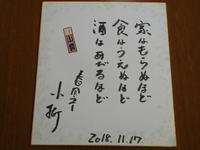 家はもらぬほど
食はうえぬほど
酒はあびるほど
春風亭
小朝
2018.11.17.